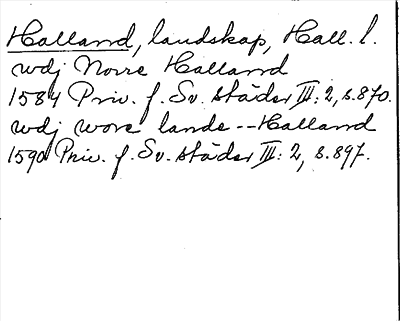 Halland, landskap, Hall. l.
wdj Norre Halland
1584 Priv. f. Sv. städer III: 2, s. 870.
wdj wore lande -- Halland
1590 Priv. f. Sv. städer III: 2, s. 897.